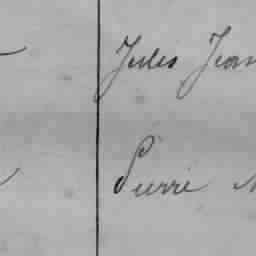 Jules Jean
Pierre